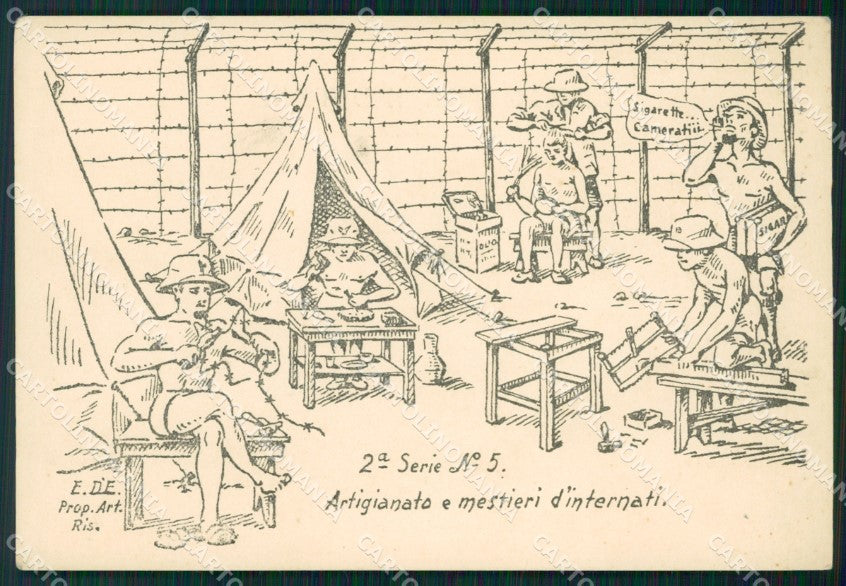 Sigarette...
Cameratiii
OLIO
SIGAR
2ª Serie Nº 5.
Artigianato e mestieri d'internati.
E. DE.
Prop. Art.
Ris.
CARTOLINOMANIA